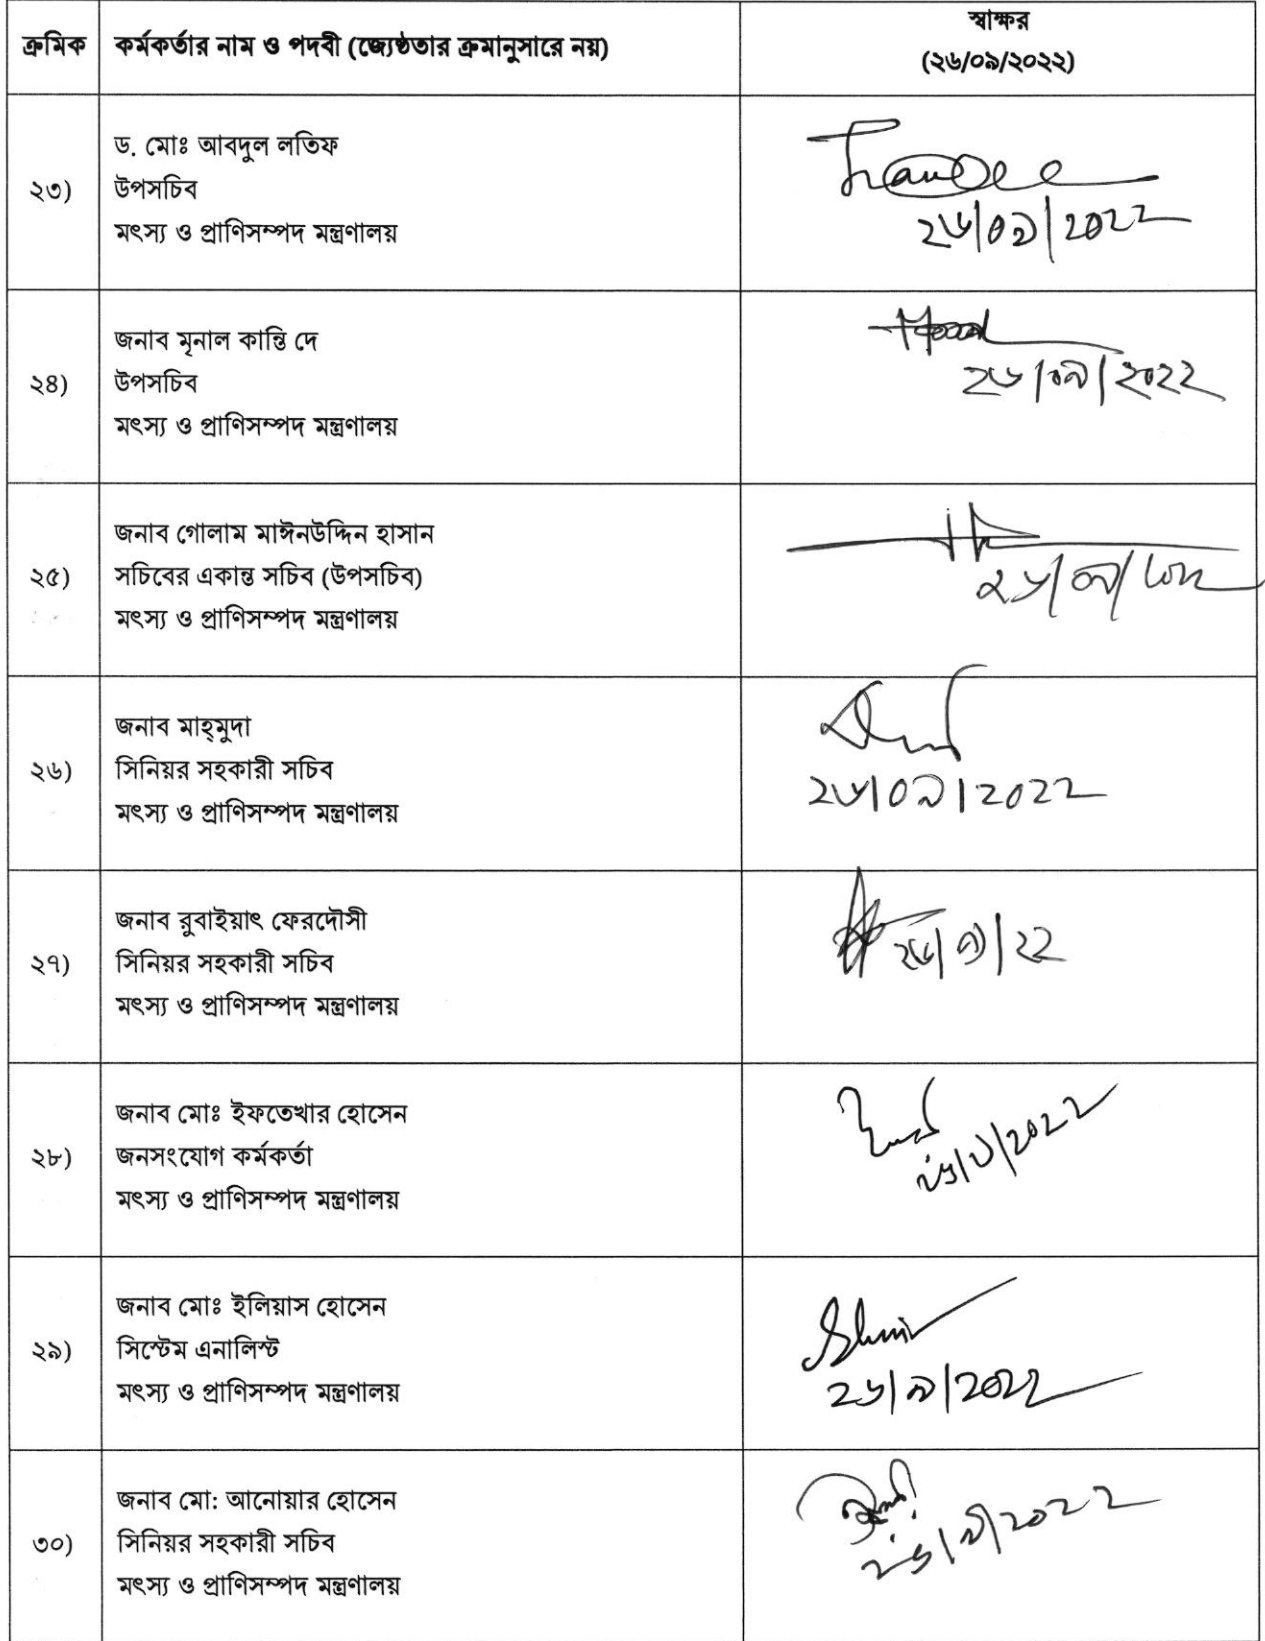 ক্রমিক
কর্মকর্তার নাম ও পদবী (জ্যেষ্ঠতার ক্রমানুসারে নয়)
স্বাক্ষর
(২৬/০৯/২০২২)
২৩)
ড. মোঃ আবদুল লতিফ
উপসচিব
মৎস্য ও প্রাণিসম্পদ মন্ত্রণালয়
২৬/০৯/২০২২
২৪)
জনাব মৃনাল কান্তি দে
উপসচিব
মৎস্য ও প্রাণিসম্পদ মন্ত্রণালয়
২৬/০৯/২০২২
২৫)
জনাব গোলাম মাঈনউদ্দিন হাসান
সচিবের একান্ত সচিব (উপসচিব)
মৎস্য ও প্রাণিসম্পদ মন্ত্রণালয়
২৬)
জনাব মাহ্‌মুদা
সিনিয়র সহকারী সচিব
মৎস্য ও প্রাণিসম্পদ মন্ত্রণালয়
২৬/০৯/২০২২
২৭)
জনাব রুবাইয়াৎ ফেরদৌসী
সিনিয়র সহকারী সচিব
মৎস্য ও প্রাণিসম্পদ মন্ত্রণালয়
২৬/৯/২২
২৮)
জনাব মোঃ ইফতেখার হোসেন
জনসংযোগ কর্মকর্তা
মৎস্য ও প্রাণিসম্পদ মন্ত্রণালয়
২৬/৯/২০২২
২৯)
জনাব মোঃ ইলিয়াস হোসেন
সিস্টেম এনালিস্ট
মৎস্য ও প্রাণিসম্পদ মন্ত্রণালয়
২৬/৯/২০২২
৩০)
জনাব মো: আনোয়ার হোসেন
সিনিয়র সহকারী সচিব
মৎস্য ও প্রাণিসম্পদ মন্ত্রণালয়
২৬/৯/২০২২